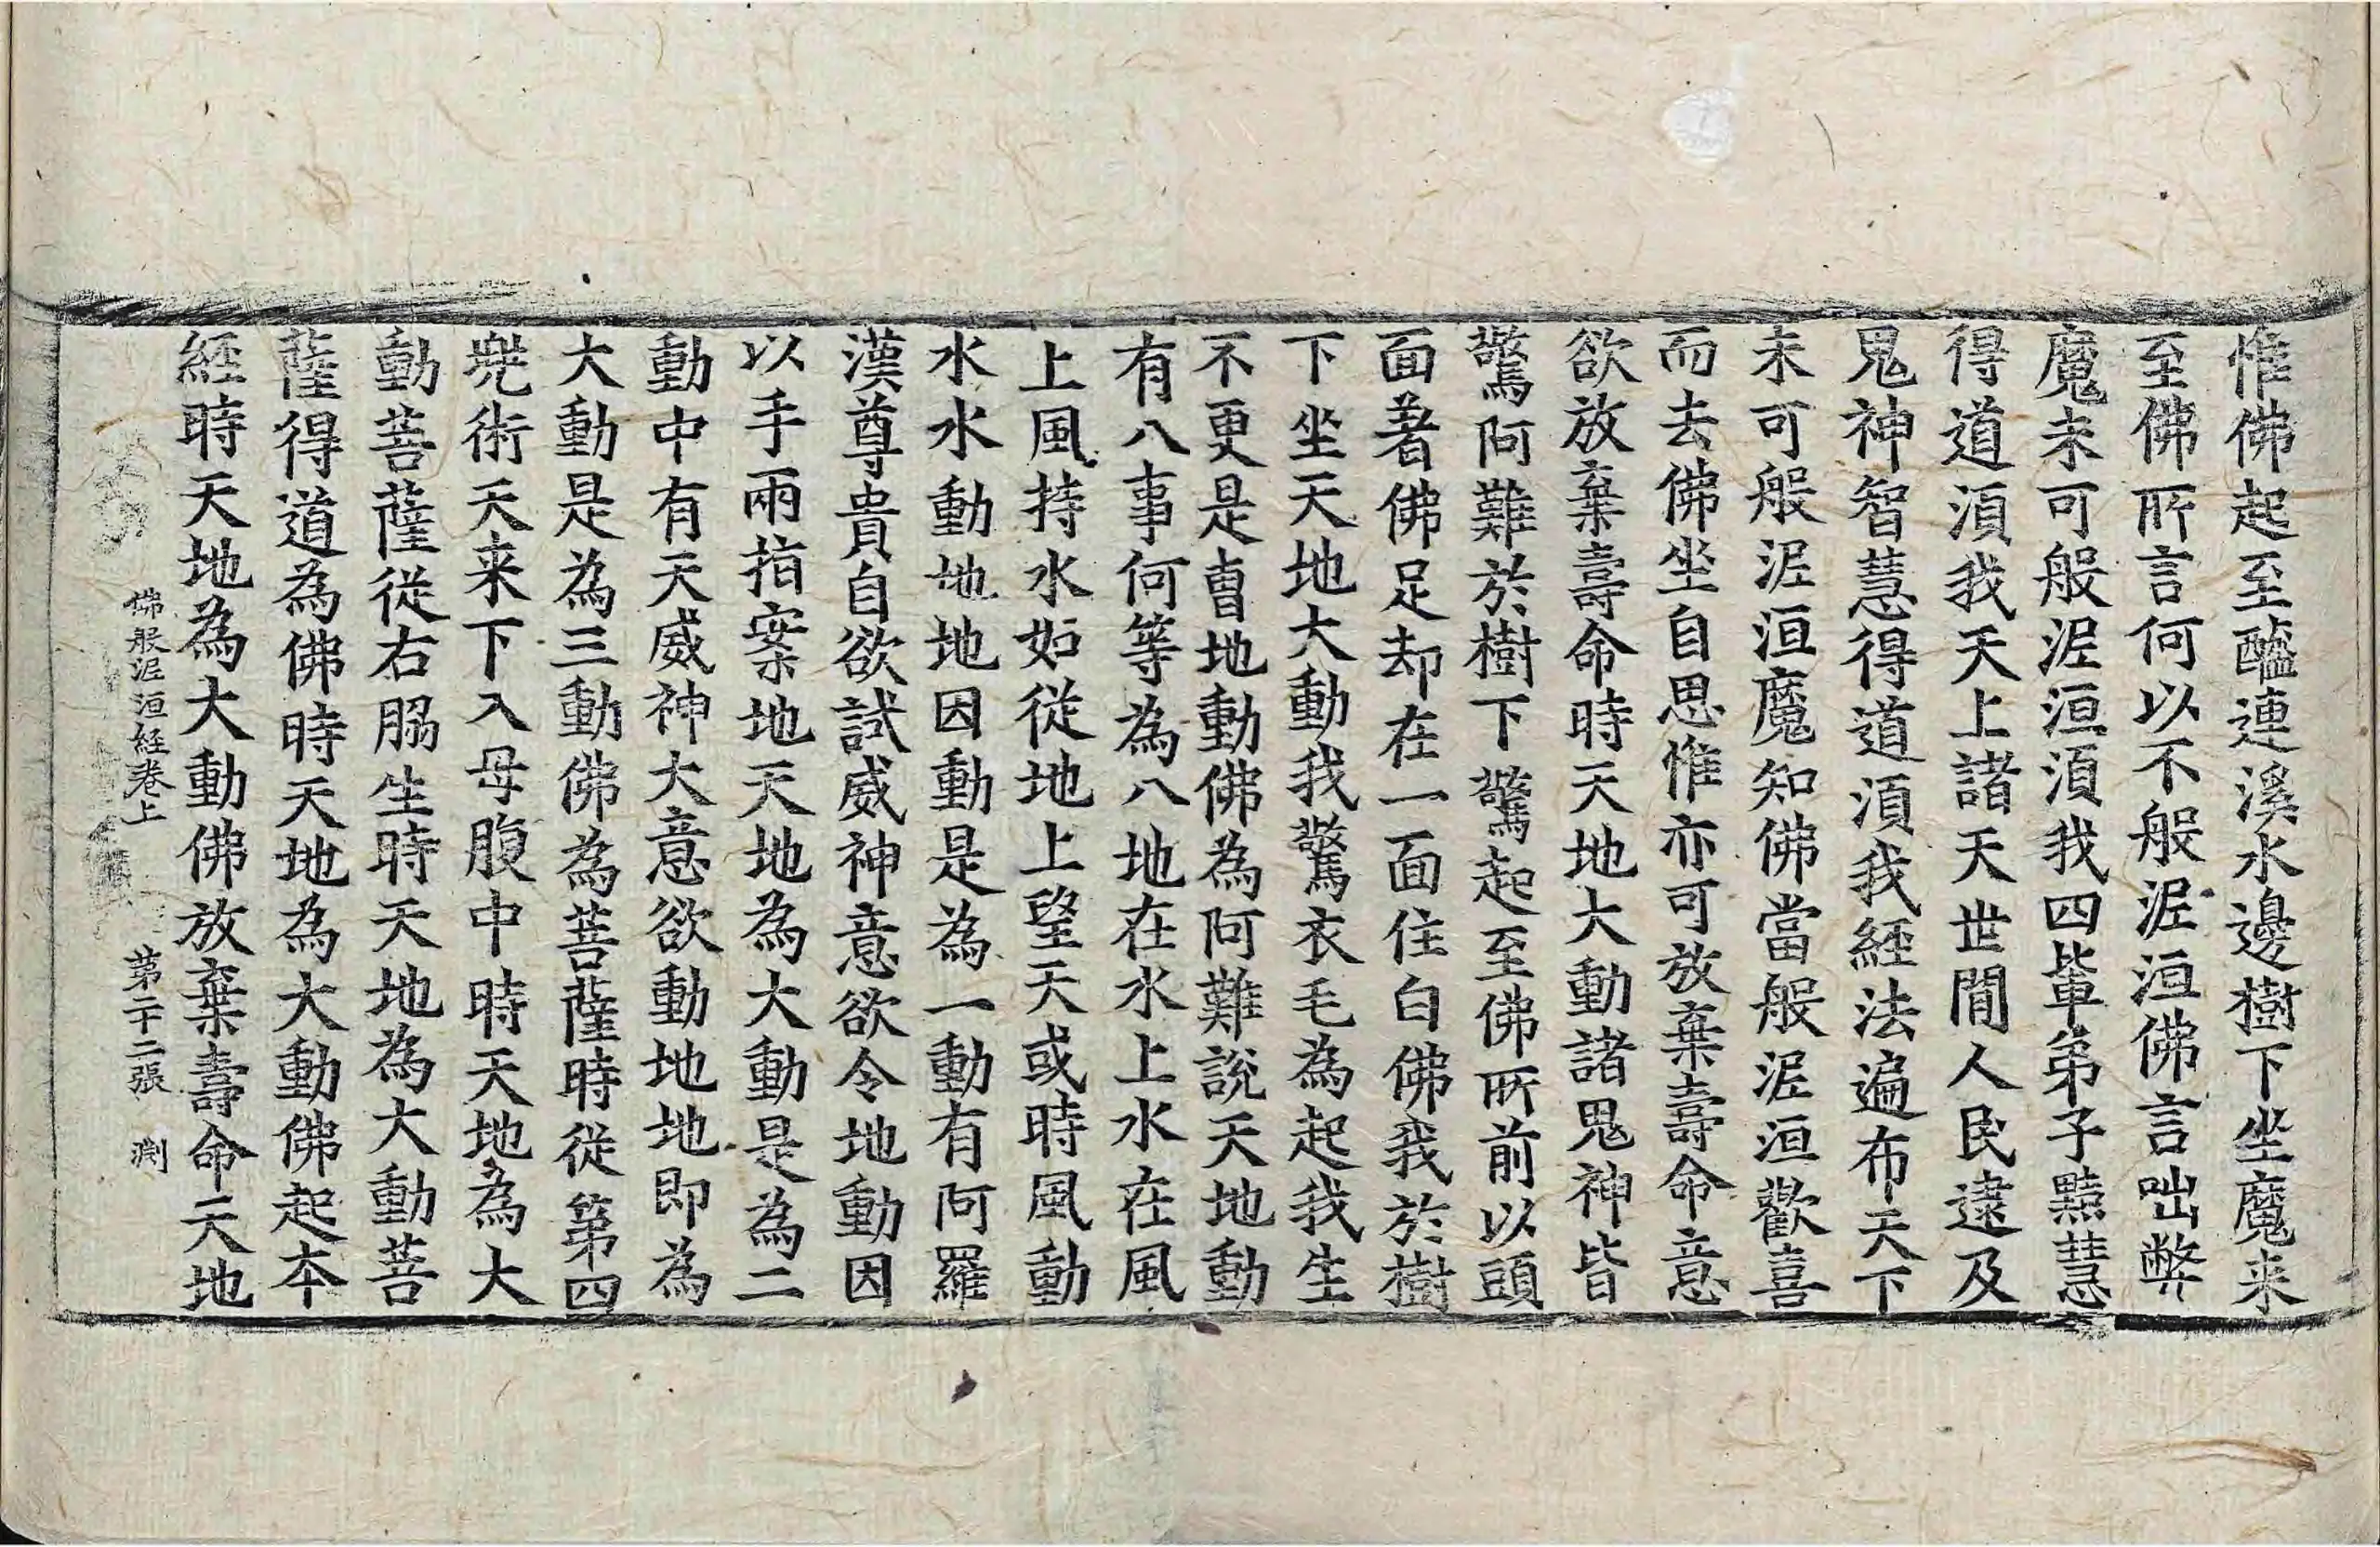 惟佛起至醯連溪水邊樹下坐魔来
至佛所言何以不般泥洹佛言咄弊
魔未可般泥洹湏我四軰弟子黠慧
得道湏我天上諸天世閒人民逮及
鬼神智慧得道湏我經法遍布天下
未可般泥洹魔知佛當般泥洹歡喜
而去佛坐自思惟亦可放棄壽命意
欲放棄壽命時天地大動諸鬼神皆
驚阿難於樹下驚起至佛所前以頭
面著佛足却在一面住白佛我於樹
下坐天地大動我驚衣毛為起我生
不更是曺地動佛為阿難說天地動
有八事何等為八地在水上水在風
上風持水如從地上望天或時風動
水水動地地因動是為一動有阿羅
漢尊貴自欲試威神意欲令地動因
以手兩指案地天地為大動是為二
動中有天威神大意欲動地地即為
大動是為三動佛為菩薩時從第四
兠術天来下入母腹中時天地為大
動菩薩從右脇生時天地為大動菩
薩得道為佛時天地為大動佛起夲
經時天地為大動佛放棄壽命天地
佛般泥洹經卷上 第二十二張 渕